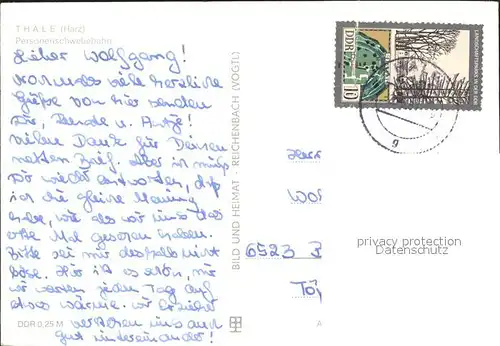 THALE (Harz)
Personenschwebebahn
Lieber Wolfgang!
viele herzliche
Grüße von hier senden
Dir, Renate u. Antje!
Vielen Dank für Deinen
netten Brief. Aber ich muß
Dir wieder antworten, daß
ich die gleiche Meinung
habe, wie als wir uns das
erste Mal gesehen haben.
Bitte sei mir deshalb nicht
böse. Hier ist es schön, nur
wir warten jeden Tag auf
etwas Wärme. Wir Erzieher
verstehen uns auch
gut untereinander!
DDR 0,25 M
BILD UND HEIMAT · REICHENBACH (VOGTL)
DDR
10
9
Herr
Wol
6523
privacy protection
Datenschutz
A